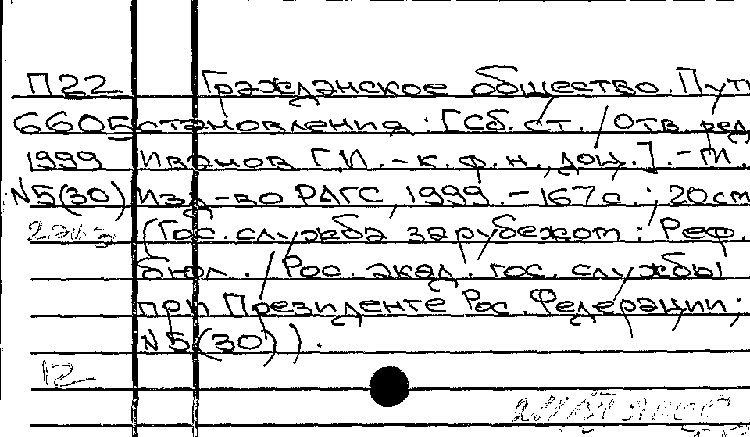 П22 Гражданское общество. Пут
6605 становления: [Сб. ст. / Отв. ред.
1999 Иванов Г.И. - к.ф.н., доц.]. - М.,
N5(30) Изд-во РАГС, 1999. - 167с.; 20см
2экз (Гос. служба за рубежом: Реф.
бюл. / Рос. акад. гос. службы
при Президенте Рос. Федерации;
N5(30)).
12